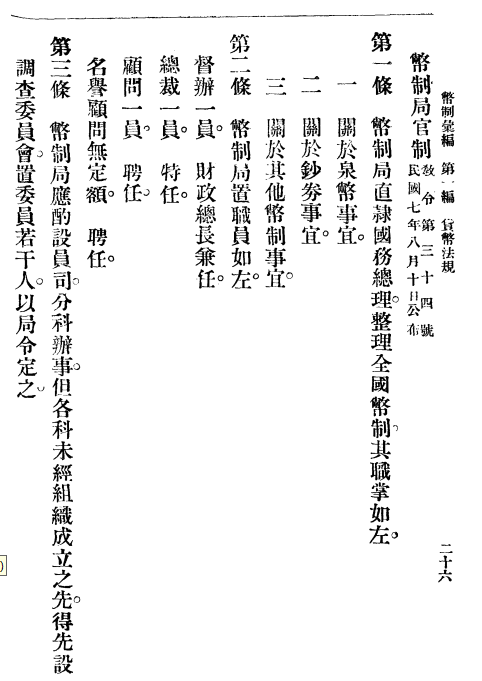 幣制彙編　第一編　貨幣法規　二十六
幣制局官制
教令第三十四號
民國七年八月十日公布
第一條　幣制局直隸國務總理。整理全國幣制。其職掌如左。
一　關於泉幣事宜。
二　關於鈔券事宜。
三　關於其他幣制事宜。
第二條　幣制局置職員如左。
督辦一員。　財政總長兼任。
總裁一員。　特任。
顧問一員。　聘任。
名譽顧問無定額。　聘任。
第三條　幣制局應酌設員司。分科辦事。但各科未經組織成立之先。得先設
調查委員會。置委員若干人。以局令定之